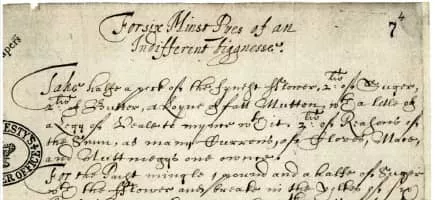 For six Minst Pyes of an
Indifferent biggnesse.
74
Take halfe a peck of the fynest Flower, 2 lib of Suger,
2 lib of Butter, a Loyne of fatt Mutton, wth a litle of
a Legg of Veale to mynce wth it, 2 lib of Reasons of
the Sunn, as many Currons, of Cloves, Mace,
and Nuttmeggs one ownce.
For the Paist mingle 1 pound and a halfe of Suger
wth the Flower and breake in the Yolkes of six
papers
ESTY'S
ER OFFICE